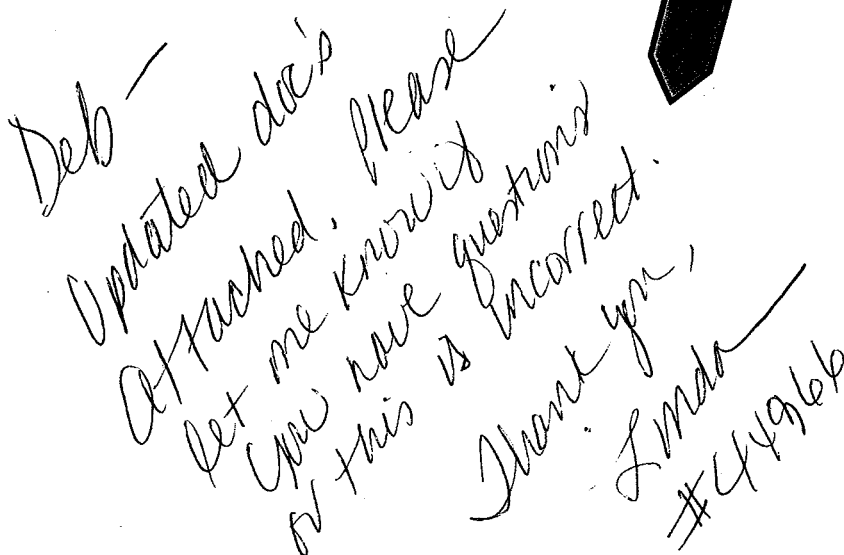 Deb —
Updated doc's
Attached. Please
let me know if
you have questions
or this is incorrect.
Thank you,
Linda
#44966